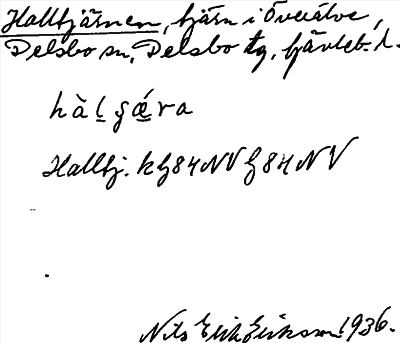 Halltjärnen, tjärn i Överälve,
Delsbo sn, Delsbo tg, Gävleb. l.
hàl̠ ʂǽ̠ra
Halltj. k G84NV G84NV
Nils Erik Eriksson 1936.